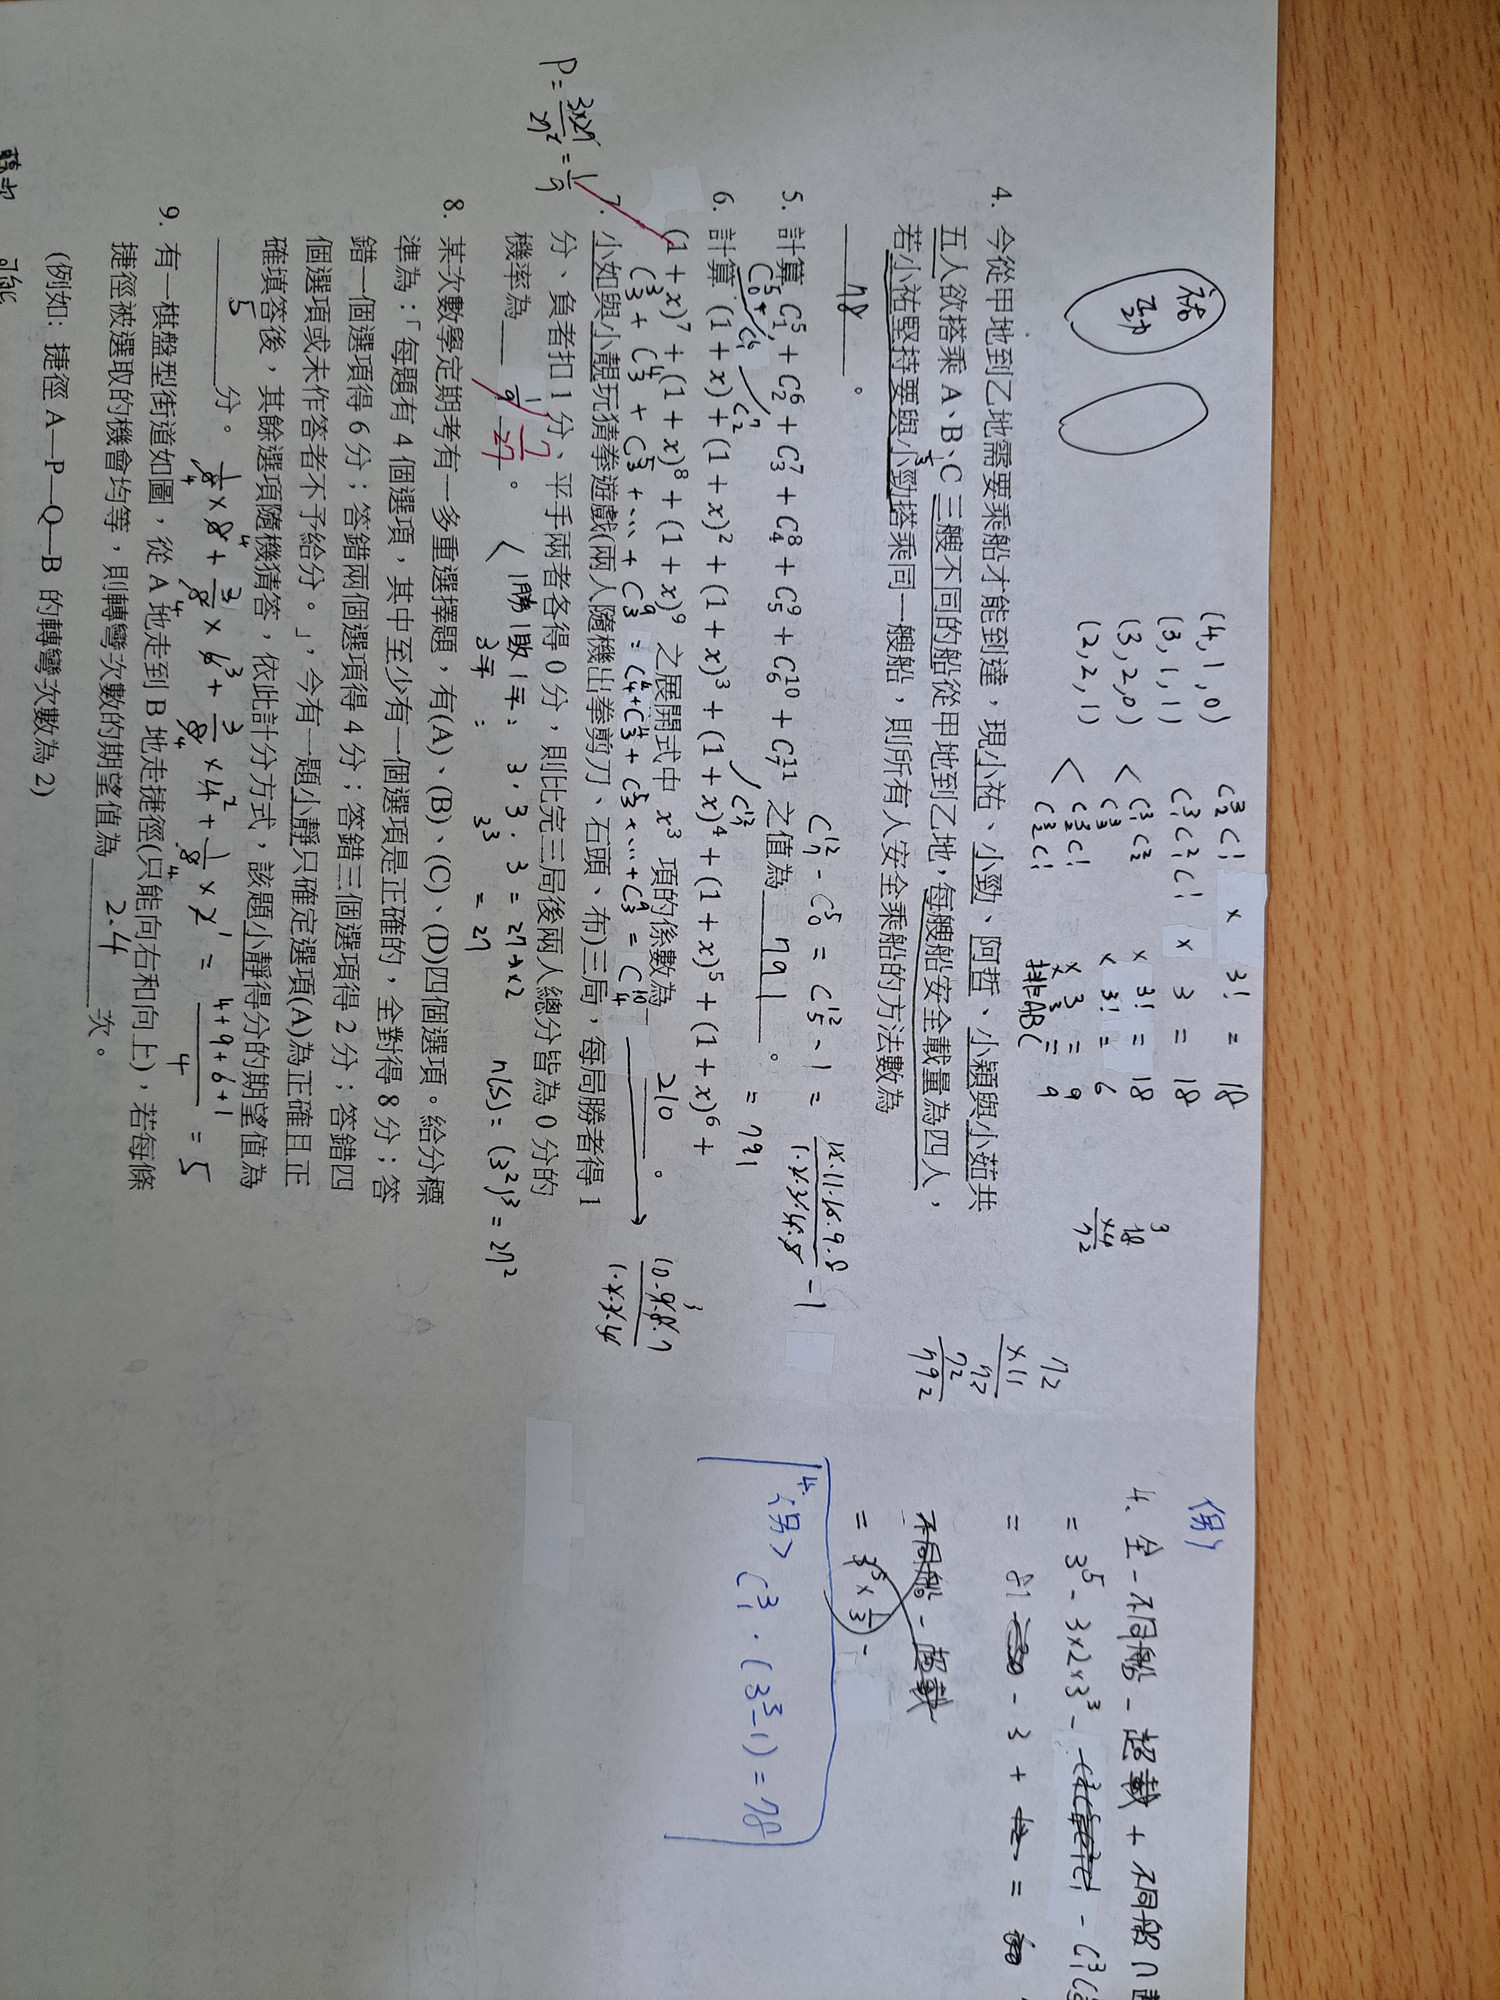 祐
勁
(4,1,0) C³₂C¹₁ × 3! = 18
(3,1,1) C³₁C²₁C¹₁ × 3 = 18
(3,2,0) < C³₁C²₂ × 3! = 18
C³₃ × 3! = 6
(2,2,1) < C³₂C¹₁ × 3 = 9
C³₂C¹₁ × 3 = 9
排ABC
18
×4
72
4. 今從甲地到乙地需要乘船才能到達，現小祐、小勁、阿哲、小穎與小茹共
五人欲搭乘 A、B、C 三艘不同的船從甲地到乙地，每艘船安全載量為四人，
若小祐堅持要與小勁搭乘同一艘船，則所有人安全乘船的方法數為
78 。
72
×11
72
72
792
C¹²₇ - C⁵₀ = C¹²₅ - 1 = 12·11·10·9·8 / 1·2·3·4·5 - 1
= 791
5. 計算 C⁵₁ + C⁶₂ + C⁷₃ + C⁸₄ + C⁹₅ + C¹⁰₆ + C¹¹₇ 之值為 791 。
C⁵₀ + C⁶₁ C⁷₂ C¹²₇
6. 計算 (1 + x) + (1 + x)² + (1 + x)³ + (1 + x)⁴ + (1 + x)⁵ + (1 + x)⁶ +
(1 + x)⁷ + (1 + x)⁸ + (1 + x)⁹ 之展開式中 x³ 項的係數為 210 。
C³₃ + C⁴₃ + C⁵₃ + ... + C⁹₃ = C⁴₄ + C⁴₃ + C⁵₃ + ... + C⁹₃ = C¹⁰₄
10·9·8·7 / 1·2·3·4
P = 3×27 / 27² = 1/9
7. 小如與小靚玩猜拳遊戲(兩人隨機出拳剪刀、石頭、布)三局，每局勝者得 1
分、負者扣 1 分、平手兩者各得 0 分，則比完三局後兩人總分皆為 0 分的
機率為 1/9 7/27 。
< 1勝1敗1平： 3·3·3 = 27 → ×2
3平： 3³ = 27
n(S) = (3²)³ = 27²
8. 某次數學定期考有一多重選擇題，有(A)、(B)、(C)、(D)四個選項。給分標
準為：「每題有 4 個選項，其中至少有一個選項是正確的，全對得 8 分；答
錯一個選項得 6 分；答錯兩個選項得 4 分；答錯三個選項得 2 分；答錯四
個選項或未作答者不予給分。」，今有一題小靜只確定選項(A)為正確且正
確填答後，其餘選項隨機猜答，依此計分方式，該題小靜得分的期望值為
5 分。
1/8 × 8 + 3/8 × 6 + 3/8 × 4 + 1/8 × 2 = 4+9+6+1 / 4 = 5
9. 有一棋盤型街道如圖，從 A 地走到 B 地走捷徑(只能向右和向上)，若每條
捷徑被選取的機會均等，則轉彎次數的期望值為 2.4 次。
(例如: 捷徑 A—P—Q—B 的轉彎次數為 2)
4. 全 - 不同船 - 超載 + 不同船 ∩
= 3⁵ - 3×2×3³ -
= 81 - 3 +
不同船 - 超載
= 3⁵ × 1/3 -
4. C³₁ · (3³-1) = 78